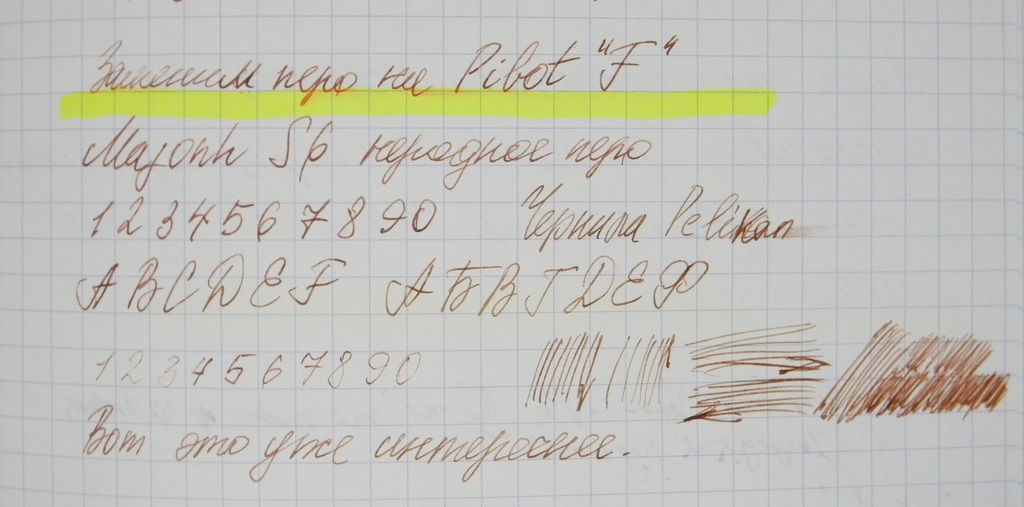 Заменим перо на Pibot "F"
Majohn S6 неродное перо
1 2 3 4 5 6 7 8 9 0 Чернила Pelikan
A B C D E F А Б В Г Д Е Ф
1 2 3 4 5 6 7 8 9 0
Вот это уже интереснее.